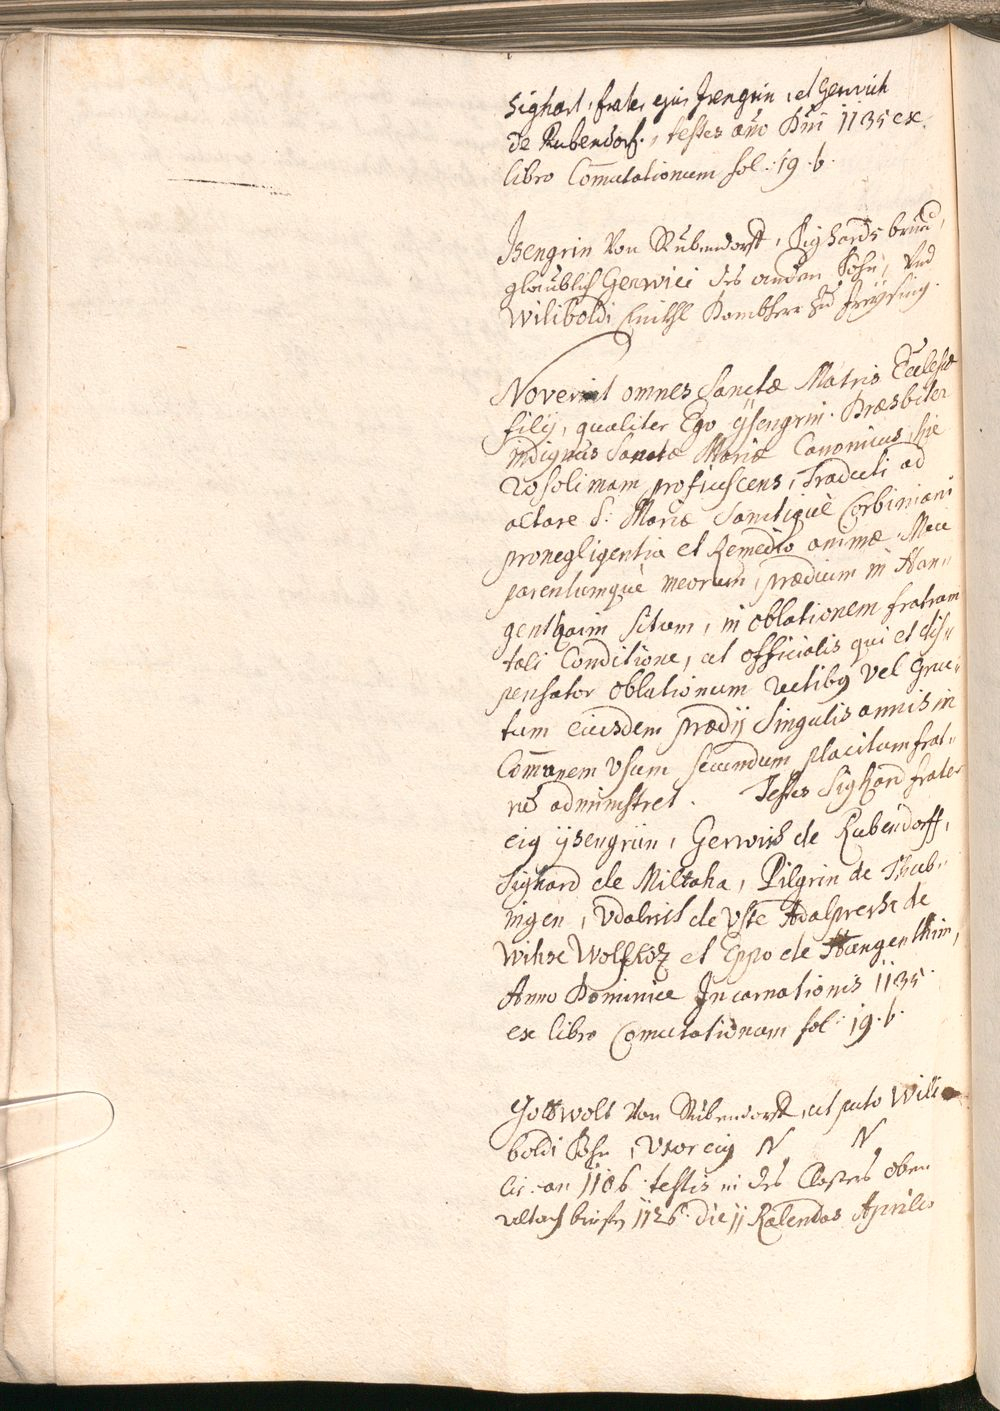 Sighart, frater ejus Jsengrin, et Gerwich
de Rubendorf., testes año Dñi 1135 ex
libro Com̄utationum fol: 19. b.
Jsengrin Von Rübendorff, Sighards brued,
glaüblich Gerwici des andern Sohn, Vnd
Wiliboldi Dombherr zu Freÿsing.
Noverint omnes Sanctæ Matris Ecclesiæ
filij, qualiter Ego ÿsengrin. Præsbiter
indignus Sanctæ Mariæ Canonicus, hie
rosolimam proficiscens, Tradidi ad
altare S: Mariæ Sanctiquè Corbiniani
pro negligentia et Remedio animæ Meæ
parentumquè meorum, prædium in Han„
genthaim situm, in oblationem fratrum
tali Conditione, ut officialis qui et dis„
pensator oblationum vectibus vel Fruc„
tum eiusdem prædij Singulis annis in
Com̄unem Vsum secundum placitum frat„
rū administret. Testes Sighard frater
eius ÿsengriin, Gerwich de Rubendorff,
Sighard de Miltaha, Pilgrin de Thub„
ingen, Vdalrich de Vste Adalpreht de
Wihse Wolfholz et Eppo de Hangenthim,
Anno Dominice Incarnationis 1135.
ex libro Com̄utationum fol: 19. b.
Gottwolt Von Rübendorff, ut puto Wili
boldi Sohn, Vxor eius N N
lic. an 1106 testis in des Closters Oben
altach briefen 1126. die ij Kalendas Aprilis